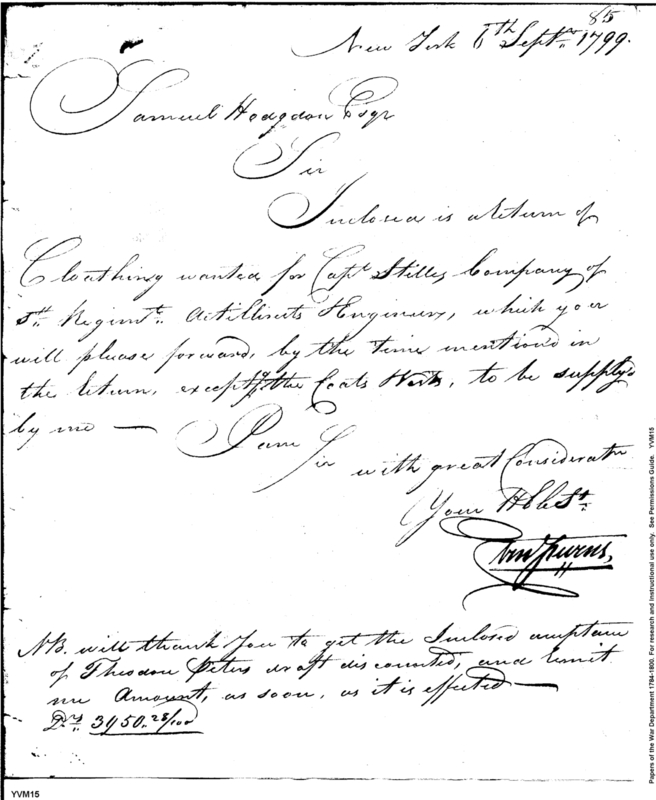 85
New York 6th Septr 1799.
Samuel Hodgdon Esqr
Sir
Inclosed is a Return of
Cloathing wanted for Capt. Stilles Company of
Regimt. Artillirists & Engineers, which you
will please forward, by the time mention'd in
the Return, exceptg the Coats & Vests, to be supply'd
by me —
I am
Sir
with great Consideratn
Your Hble St.
NB. will thank You to get the Inclosed acceptance
of Theodore Peters draft discounted, and remit
me Amount, as soon, as it is effected —
Drs. 3950. 28/100
YVM15
Papers of the War Department 1784-1800. For research and instructional use only. See Permissions Guide. YVM15